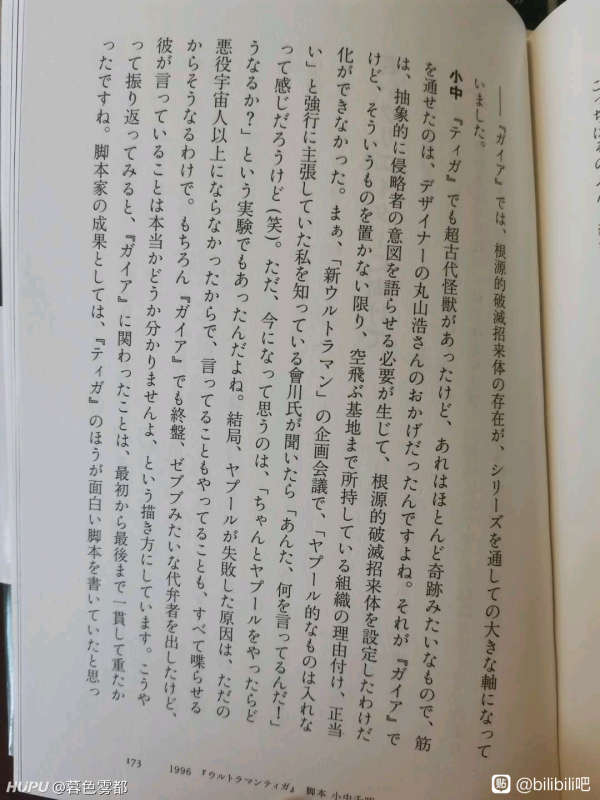 ――『ガイア』では、根源的破滅招来体の存在が、シリーズを通しての大きな軸になって
いました。
小中 『ティガ』でも超古代怪獣があったけど、あれはほとんど奇跡みたいなもので、筋
を通せたのは、デザイナーの丸山浩さんのおかげだったんですよね。それが『ガイア』で
は、抽象的に侵略者の意図を語らせる必要が生じて、根源的破滅招来体を設定したわけだ
けど、そういうものを置かない限り、空飛ぶ基地まで所持している組織の理由付け、正当
化ができなかった。まぁ、「新ウルトラマン」の企画会議で、「ヤプール的なものは入れな
い」と強行に主張していた私を知っている會川氏が聞いたら「あんた、何を言ってるんだ!」
って感じだろうけど(笑)。ただ、今になって思うのは、「ちゃんとヤプールをやったらど
うなるか?」という実験でもあったんだよね。結局、ヤプールが失敗した原因は、ただの
悪役宇宙人以上にならなかったからで、言ってることもやってることも、すべて喋らせる
からそうなるわけで。もちろん『ガイア』でも終盤、ゼブブみたいな代弁者を出したけど、
彼が言っていることは本当かどうか分かりませんよ、という描き方にしています。こうや
って振り返ってみると、『ガイア』に関わったことは、最初から最後まで一貫して重たか
ったですね。脚本家の成果としては、『ティガ』のほうが面白い脚本を書いていたと思っ
173 1996 『ウルトラマンティガ』 脚本 小中千昭
HUPU @暮色雾都
贴 @bilibili吧